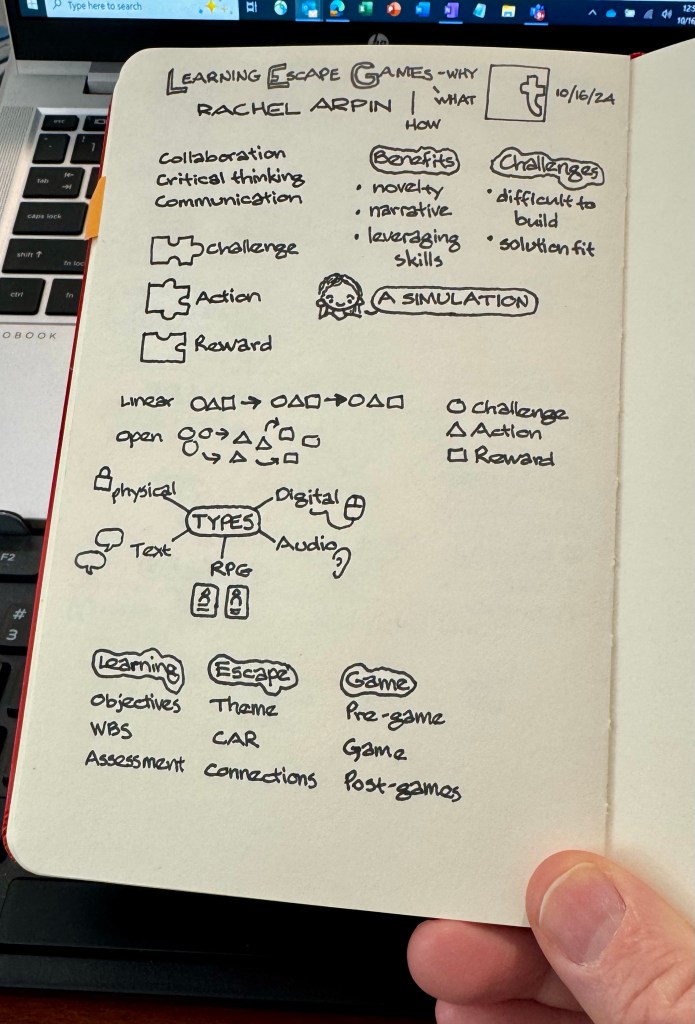 Type here to search
12:5
10/16
hp
LEARNING ESCAPE GAMES-WHY
RACHEL ARPIN | WHAT
HOW
t
10/16/24
Collaboration
Critical thinking
Communication
Benefits
• novelty
• narrative
• leveraging
skills
Challenges
• difficult to
build
• solution fit
challenge
Action
Reward
A SIMULATION
Linear
Open
Challenge
Action
Reward
TYPES
physical
Digital
Text
Audio
RPG
Learning
Objectives
WBS
Assessment
Escape
Theme
CAR
Connections
Game
Pre-game
Game
Post-games
esc
tab
caps lock
shift
fn loc
ctrl
fn
OBOOK
F2
#
3